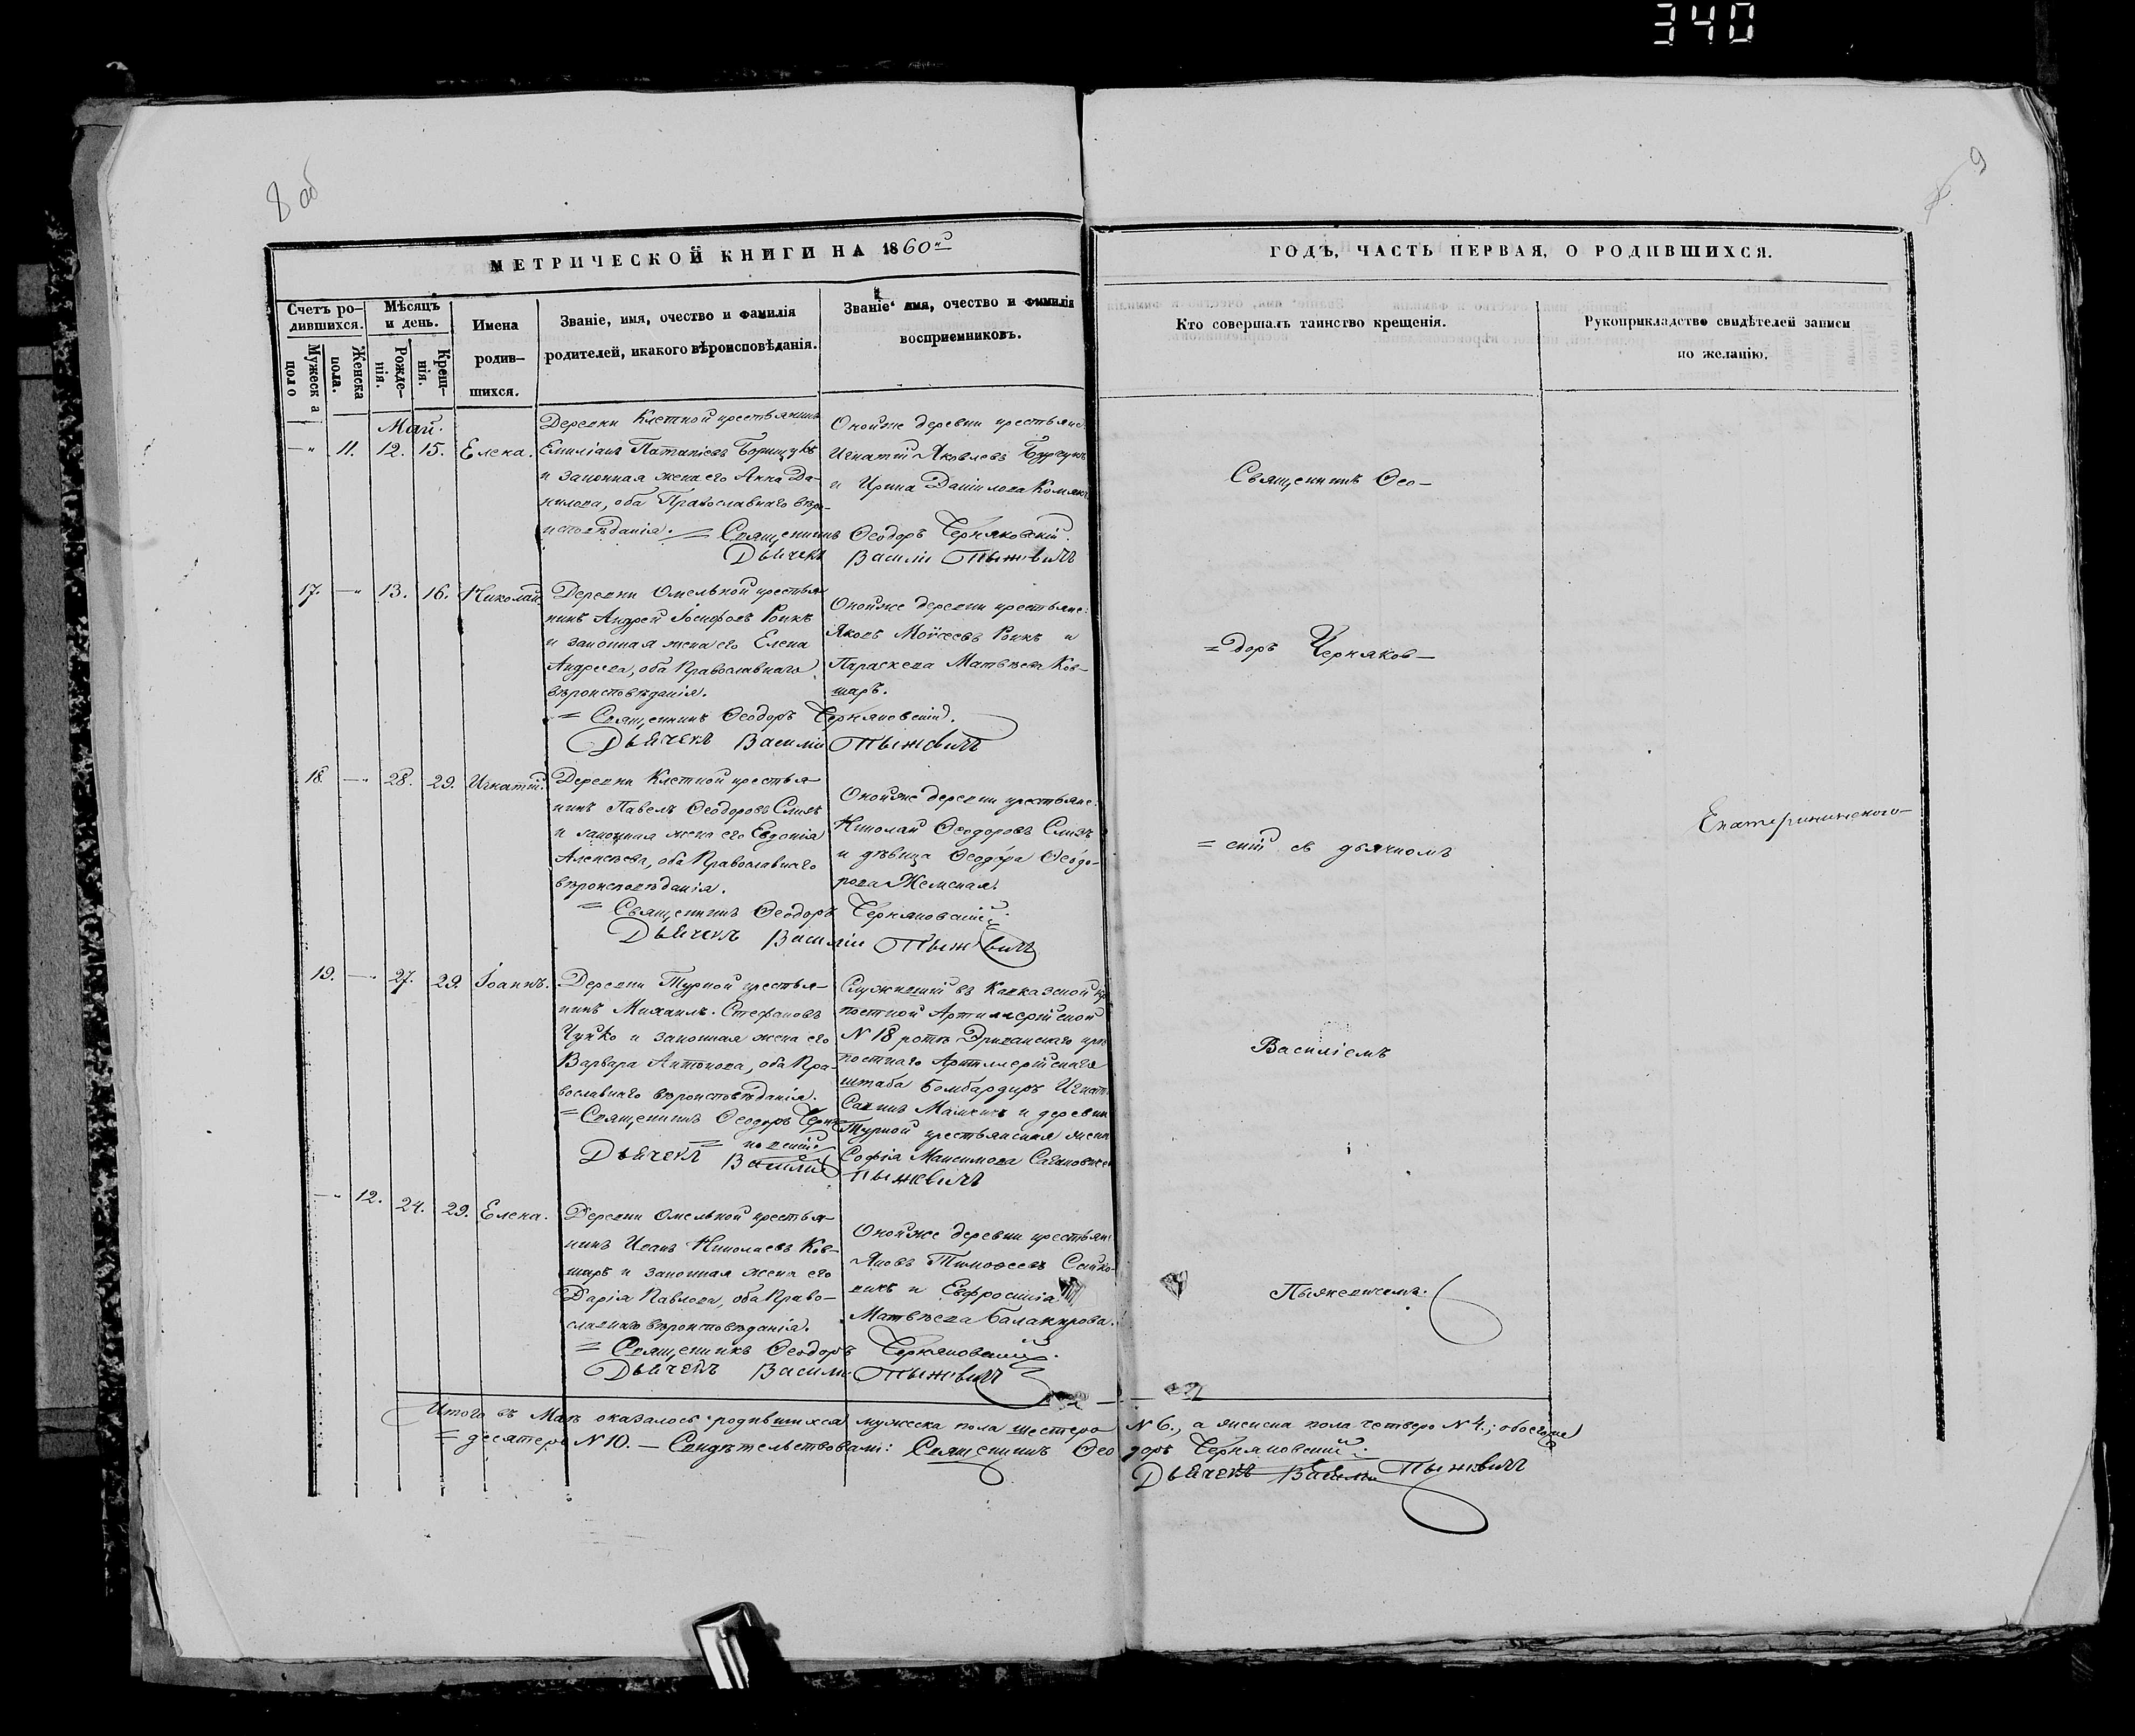 340
8 об
9
МЕТРИЧЕСКОЙ КНИГИ НА 1860й
ГОДЪ, ЧАСТЬ ПЕРВАЯ, О РОДИВШИХСЯ.
Счетъ ро-
дившихся.
Мужеска
пола
Женска
пола.
Мѣсяцъ
и день.
Рожде-
нія.
Крещ-
нія.
Имена
родив-
шихся.
Званіе, имя, очество и фамилія
родителей, и какого вѣроисповѣданія.
Званіе имя, очество и фамилія
восприемниковъ.
Кто совершалъ таинство крещенія.
Рукоприкладство свидѣтелей записи
по желанію.
Май.
—„ 11. 12. 15. Елена.
Деревни Клетной крестьянинъ
Емиліанъ Патапіевъ Борищукъ
и законная жена его Анна Да-
нилова, оба Православнаго вѣро-
исповѣданія. = Священникъ Ѳеодоръ Черняковскій.
Дьячекъ Василій Пыжевичъ
Оной же деревни крестьяне:
Игнатій Яковлевъ
и Ирина Даніилова
17. —„ 13. 16. Николай.
Деревни Омельной крестья-
нинъ Андрей Іосифовъ Роикъ
и законная жена его Елена
Андреева, оба Православнаго
вѣроисповѣданія.
= Священникъ Ѳеодоръ Черняковскій.
Дьячекъ Василій Пыжевичъ
Оной же деревни крестьяне:
Яковъ Моѵсеевъ Роикъ и
Параскева Матвѣева Ков-
шаръ.
18. —„ 28. 29. Игнатій.
Деревни Клетной крестья-
нинъ Павелъ Ѳеодоровъ Слизъ
и законная жена его Евдокія
Алексѣева, оба Православнаго
вѣроисповѣданія.
= Священникъ Ѳеодоръ Черняковскій.
Дьячекъ Василій Пыжевичъ
Оной же деревни крестьяне:
Николай Ѳеодоровъ Слизъ
и дѣвица Ѳеодора Ѳеодо-
рова
19. —„ 27. 29. Іоаннъ.
Деревни Турной крестья-
нинъ Михаилъ Стефановъ
Чуйко и законная жена его
Варвара Антонова, оба Пра-
вославнаго вѣроисповѣданія.
= Священникъ Ѳеодоръ Черня-
= ковскій
Дьячекъ Василій Пыжевичъ
Служившій въ Кавказской крѣ-
постной Артиллерійской
N 18 ротѣ Эриванскаго крѣ-
постнаго Артиллерійскаго
штаба бомбардиръ Игнатій
Савинъ и деревни
Турной крестьянская жена
Софія Максимова
—„ 12. 24. 29. Елена.
Деревни Омельной крестья-
нинъ Иванъ Николаевъ Ков-
шаръ и законная жена его
Дарія Павлова, оба Право-
славнаго вѣроисповѣданія.
= Священникъ Ѳеодоръ Черняковскій.
Дьячекъ Василій Пыжевичъ
Оной же деревни крестьяне
Яковъ Тимоѳеевъ
и Евфросинія
Матвѣева Балакирова.
Священникъ Ѳео—
=доръ Черняков—
= скій съ дьячкомъ
Василіемъ
Пыжевичемъ.
Екатерининского—
Итого въ Маѣ оказалось родившихся мужеска пола шестеро N 6., а женска пола четверо N 4.; обоего же
= десятеро N 10. — Свидѣтельствовали: Священникъ Ѳеодоръ Черняковскій.
Дьячекъ Василій Пыжевичъ